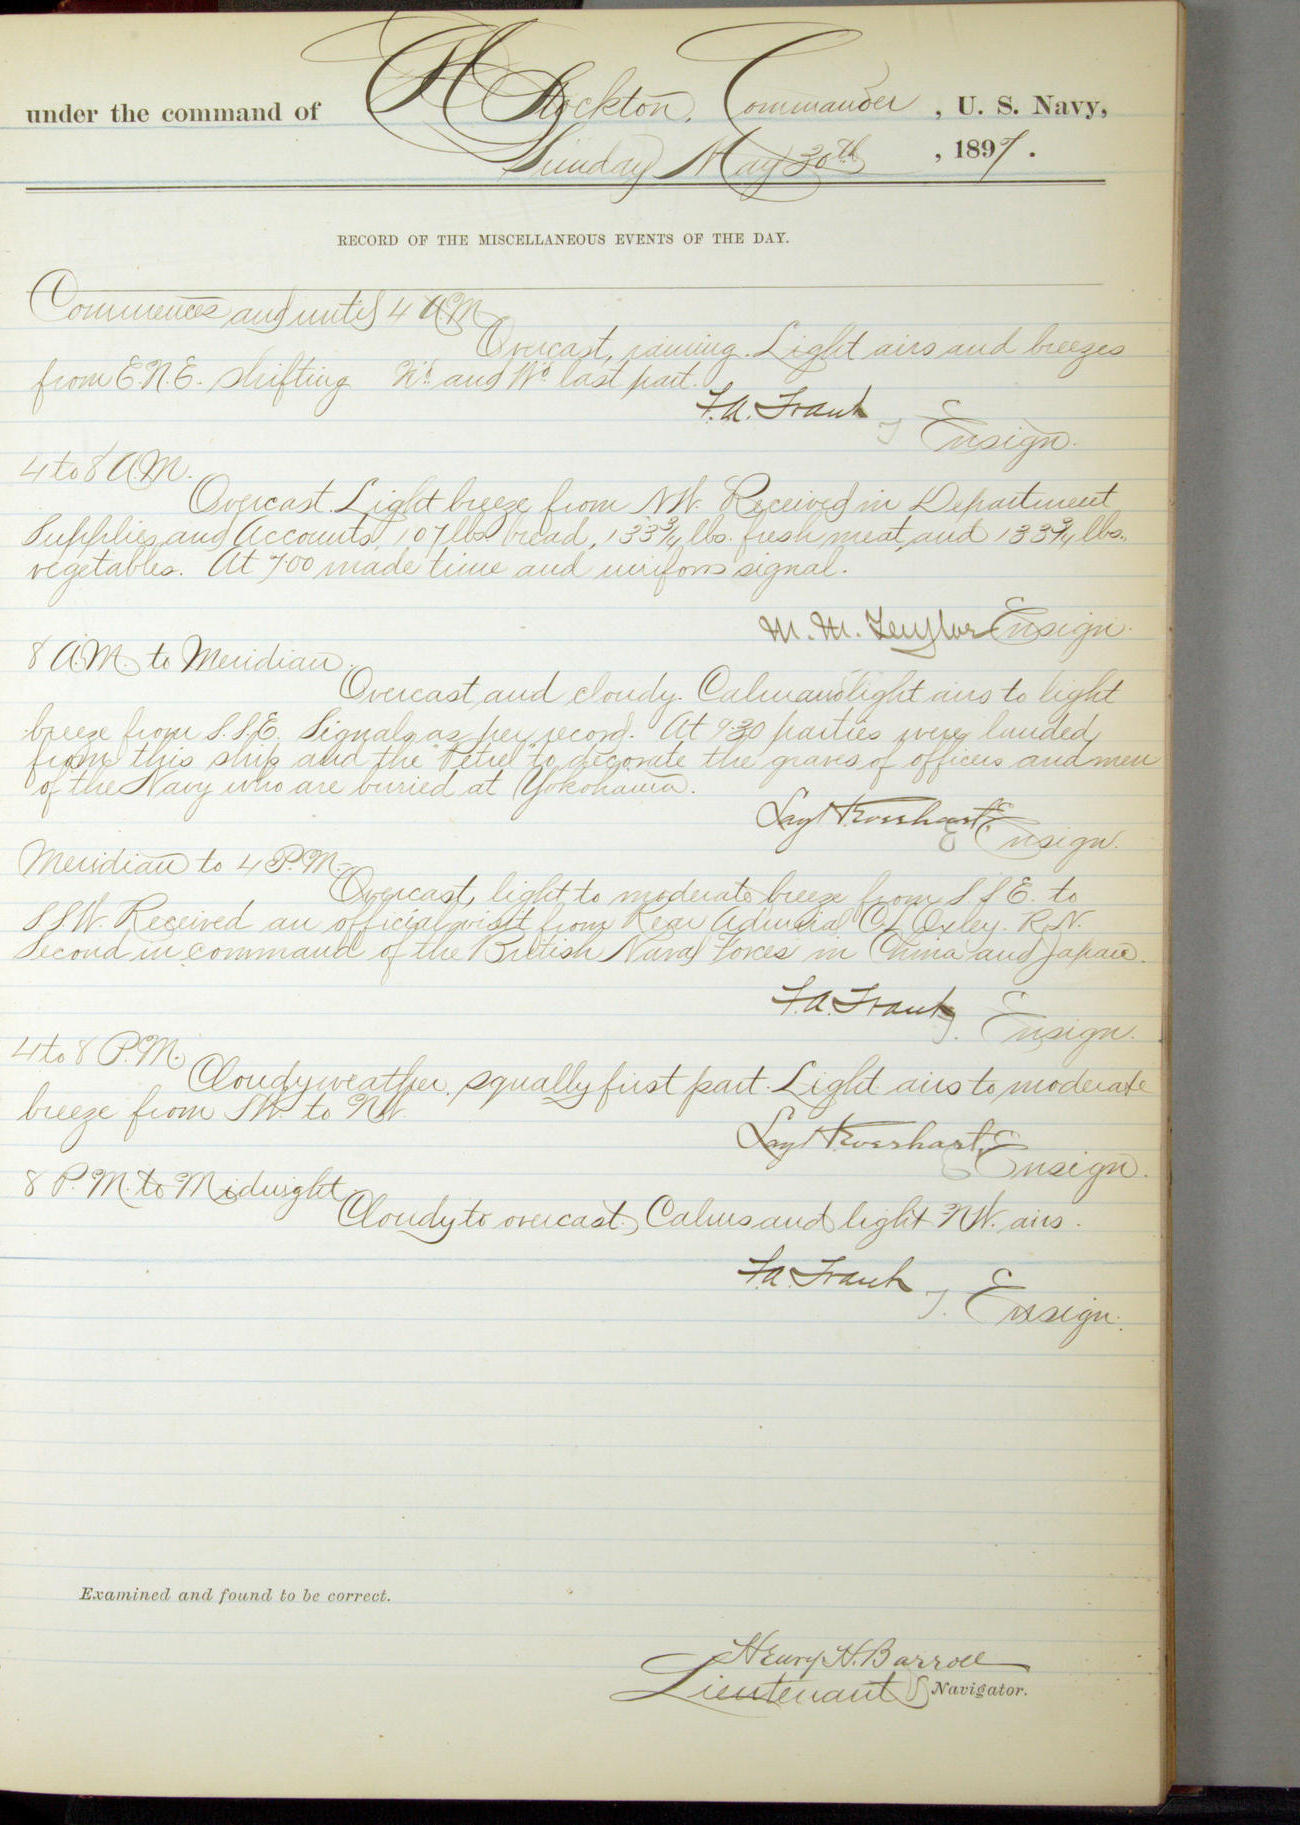 under the command of C H Stockton, Commander, U. S. Navy,
Sunday May 30th, 1897.
RECORD OF THE MISCELLANEOUS EVENTS OF THE DAY.
Commences and until 4 A.M.
Overcast, raining. Light airs and breezes
from E.N.E. shifting N'd. and W'd. last part.
F. A. Traut, Ensign.
4 to 8 A.M.
Overcast. Light breeze from NW. Received in Department
Supplies and Accounts, 107 lbs bread, 133 3/4 lbs. fresh meat, and 133 3/4 lbs.
vegetables. At 7.00 made time and uniform signal.
M. M. Taylor Ensign.
8 A.M. to Meridian.
Overcast and cloudy. Calm and light airs to light
breeze from S.S.E. Signals as per record. At 9.30 parties were landed
from this ship and the "Petrel" to decorate the graves of officers and men
of the Navy who are buried at Yokohama.
Lay H Everhart, Ensign.
Meridian to 4 P.M.
Overcast, light to moderate breeze from S.S.E. to
S.S.W. Received an official visit from Rear Admiral C L Oxley. R.N.
Second in command of the British Naval Forces in China and Japan.
F. A. Traut, Ensign.
4 to 8 P.M.
Cloudy weather, squally first part. Light airs to moderate
breeze from SW. to NW.
Lay H Everhart, Ensign.
8 P.M. to Midnight.
Cloudy to overcast. Calms and light NW. airs.
F. A. Traut, Ensign.
Examined and found to be correct.
Henry H. Barroll
Lieutenant U S Navigator.